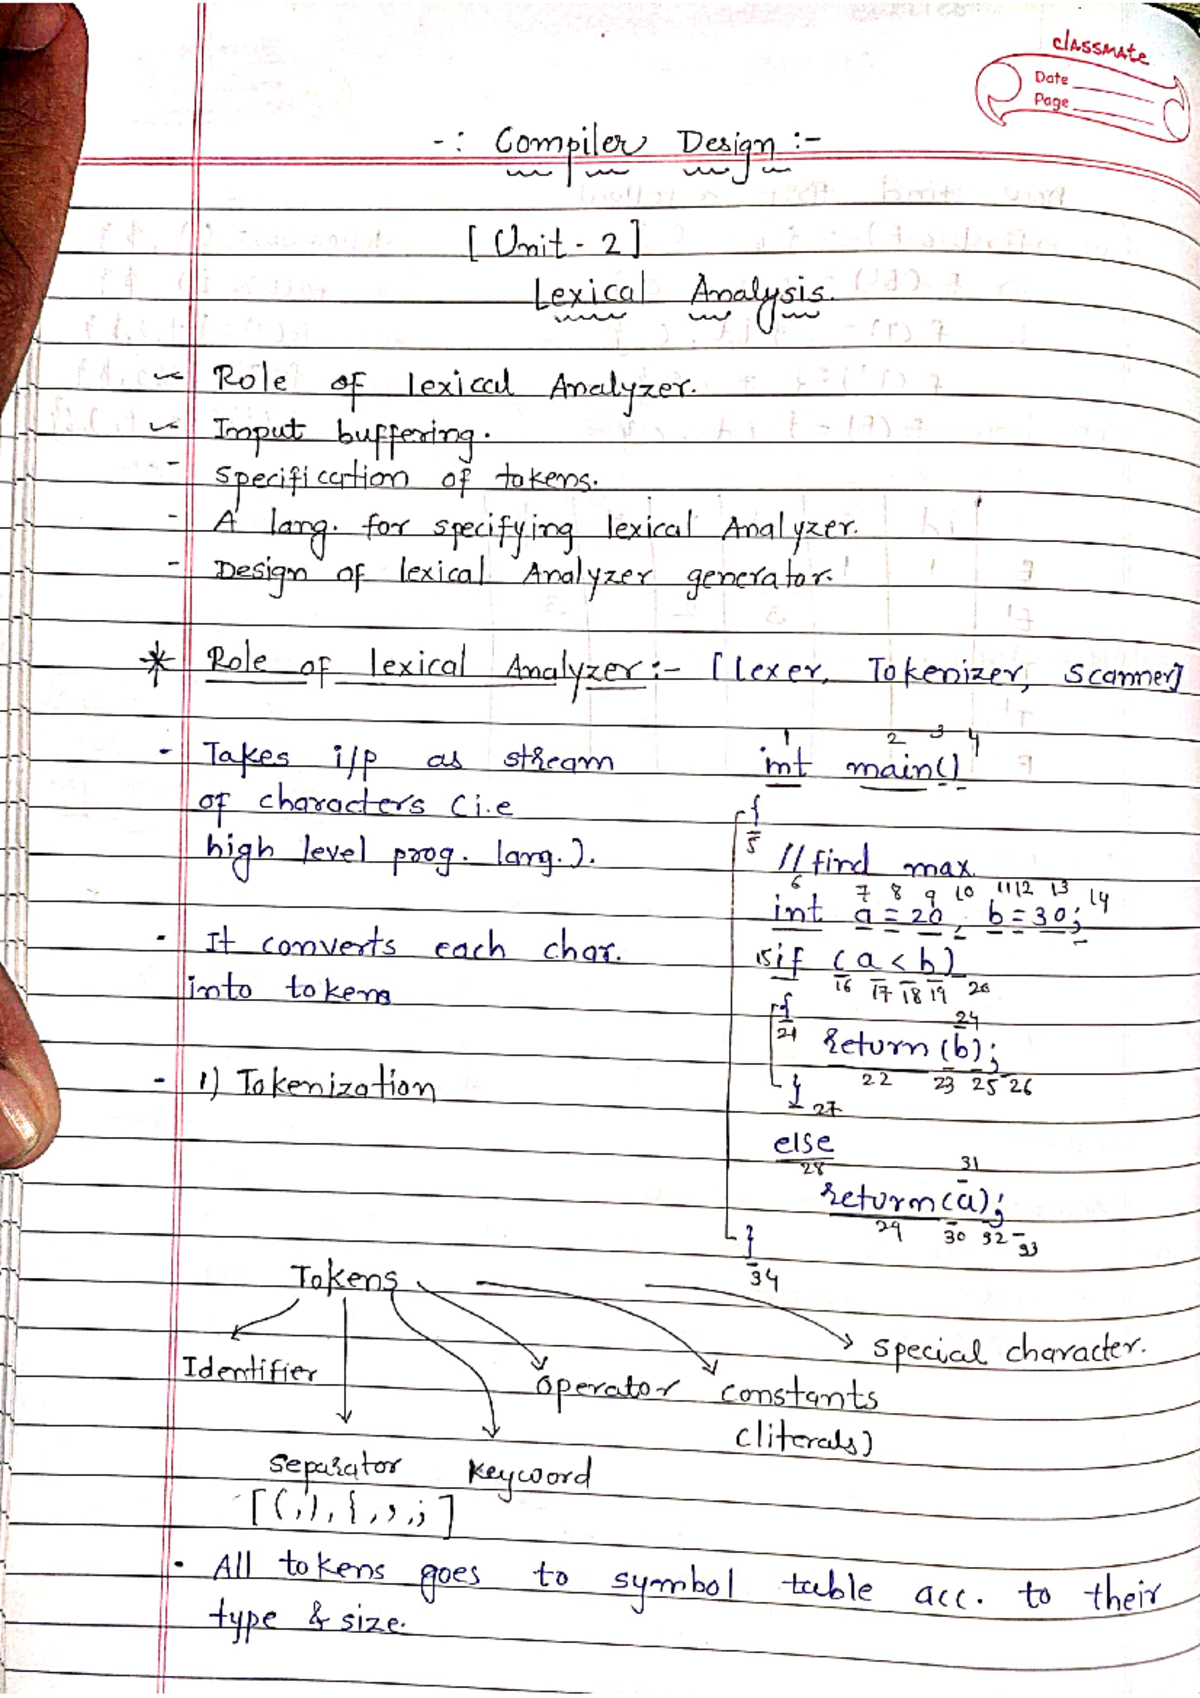 classmate
Date
Page
-: Compiler Design :-
[Unit - 2]
Lexical Analysis.
Role of lexical Analyzer.
Input buffering.
- Specification of tokens.
- A lang. for specifying lexical Analyzer.
- Design of lexical Analyzer generator.
* Role of lexical Analyzer :- [lexer, Tokenizer, Scanner]
- Takes i/p as stream
of characters (i.e
high level prog. lang.).
- It converts each char.
into tokens
- 1) Tokenization
1 2 3 4
int main()
{
5
//find max
6 7 8 9 10 11 12 13 14
int a = 20, b = 30;
15 if (a < b)
16 17 18 19 20
{
21 24
return (b);
22 23 25 26
} 27
else
28 31
return (a);
29 30 32 33
}
34
Tokens
Special character.
Identifier
operator constants
(literals)
separator keyword
[(,),{,,,;]
- All tokens goes to symbol table acc. to their
type & size.